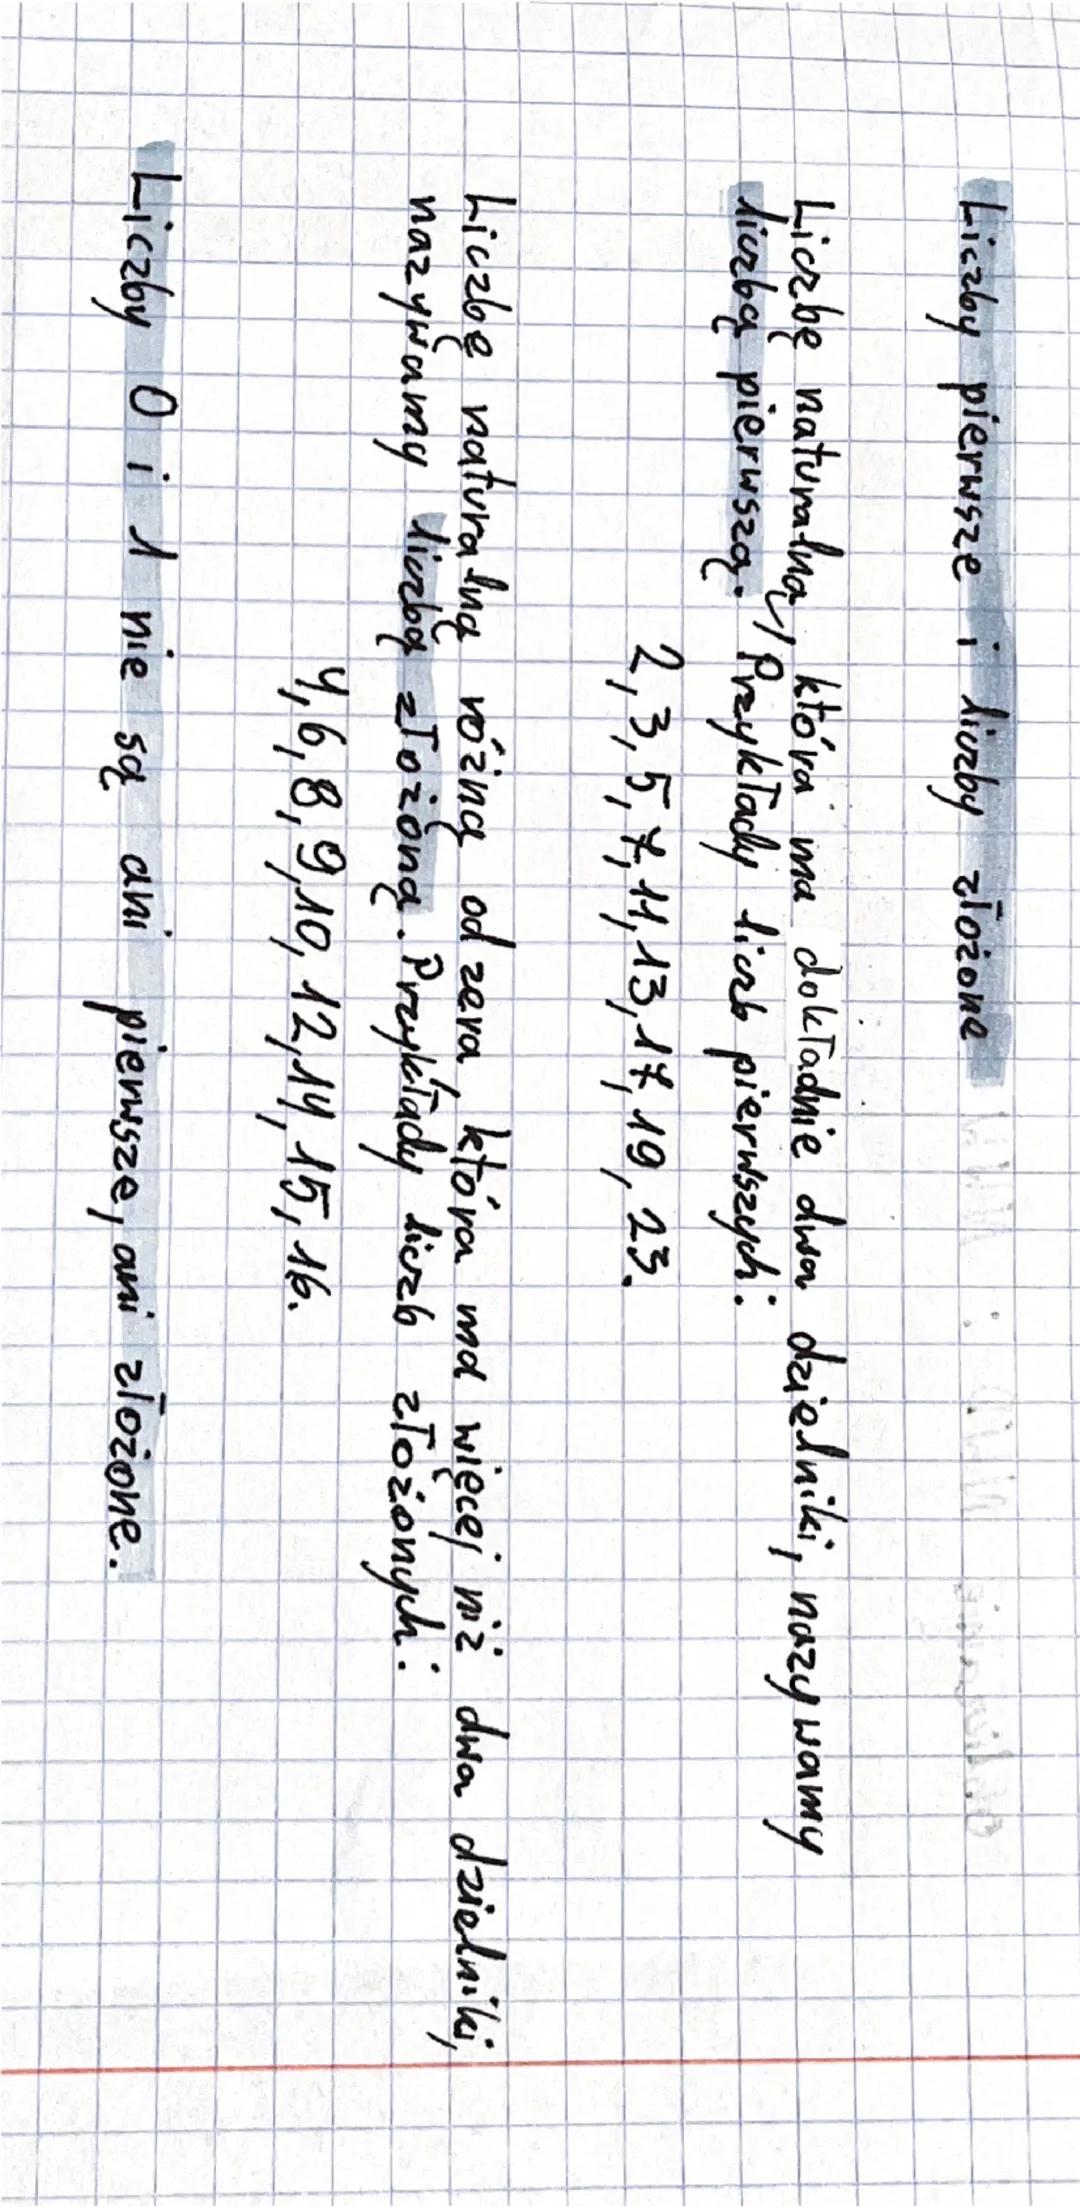 Liczby pierwsze i liczby złożone
Liczbę naturalną, która ma dokładnie dwa dzielniki, nazywamy
liczbą pierwszą. Przykłady liczb pierwszych:
2, 3, 5, 7, 11, 13, 17, 19, 23.
Liczbę naturalną różną od zera, która ma więcej niż dwa dzielniki,
nazywamy liczbą złożoną. Przykłady liczb złożonych:
4, 6, 8, 9, 10, 12, 14, 15, 16.
Liczby 0 i 1 nie są ani pierwsze, ani złożone.